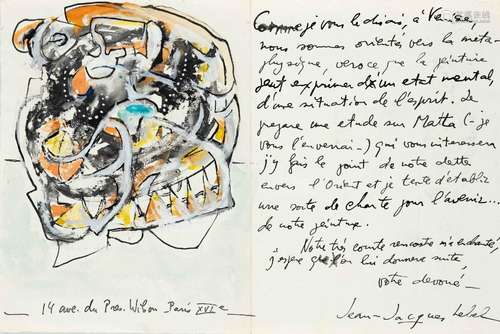 Comme je vous le disais, à Venise
nous sommes orientés vers la meta-
physique, vers ce que la peinture
peut exprimer d'un etat mental,
d'une situation de l'esprit. Je
prepare une etude sur Matta (- je
vous l'enverrai -) qui vous interessera
j'y fais le point de notre dette
envers l'Orient et je tente d'établir
une sorte de charte pour l'avenir...
de notre peinture.
Notre très courte rencontre m'a enchanté,
j'espère qu'on lui donnera suite,
votre devoué -
Jean-Jacques Lebel
- 14 ave. du Pres. Wilson Paris XVIe -